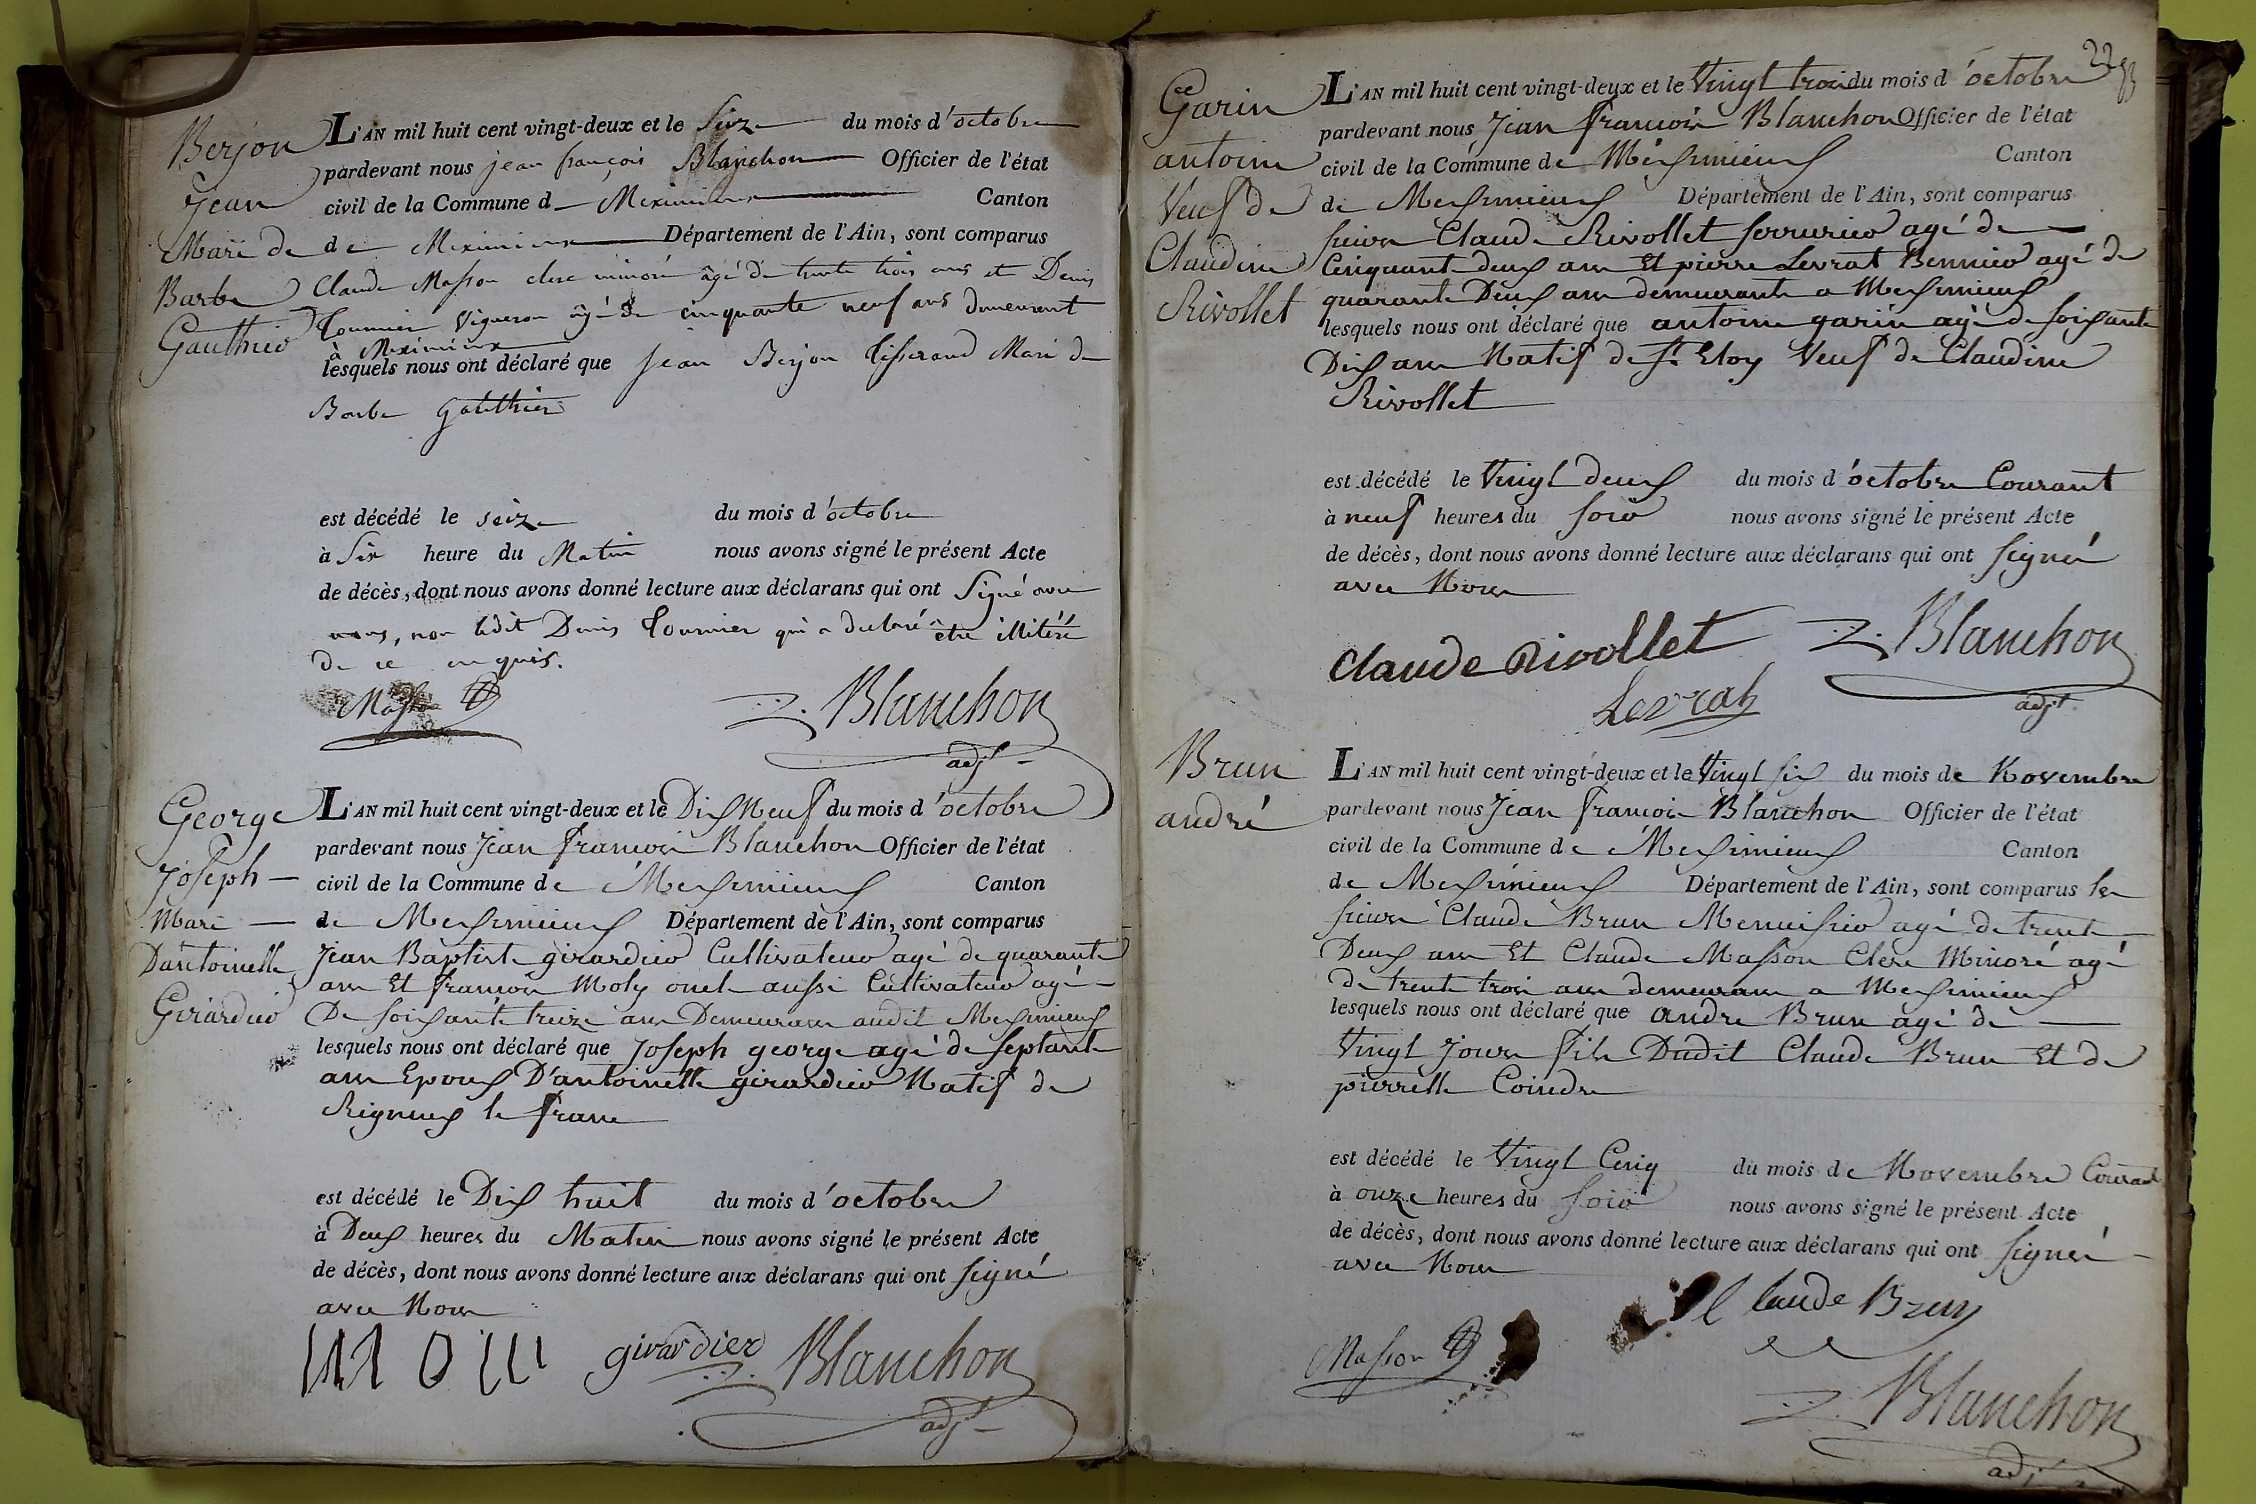 Berjon
Jean
Mari de
Barbe
Gauthier
L'AN mil huit cent vingt-deux et le Seize du mois d'octobre
pardevant nous jean françois Blanchon Officier de l'état
civil de la Commune d Meximieux Canton
de Meximieux Département de l'Ain, sont comparus
Claude Masson clerc minoré âgé de trente trois ans et Denis
Tournier Vigneron âgé de cinquante neuf ans demeurant
à Meximieux
lesquels nous ont déclaré que Jean Berjon Tisserand Mari de
Barbe Gauthier
est décédé le seize du mois d'octobre
à Six heure du Matin nous avons signé le présent Acte
de décès, dont nous avons donné lecture aux déclarans qui ont Signé avec
nous, non ledit Denis Tournier qui a déclaré être illitéré
de ce enquis.
Masson
Blanchon
adjt
George
Joseph
Mari
D'antoinette
Girardier
L'AN mil huit cent vingt-deux et le Dix Neuf du mois d'octobre
pardevant nous Jean francois Blanchon Officier de l'état
civil de la Commune de Mexsimieux Canton
de Mexsimieux Département de l'Ain, sont comparus
Jean Baptiste girardier Cultivateur agé de quarante
ans Et francois Moly oncle aussi Cultivateur agé
De soixante treize ans Demeurans audit Mexsimieux
lesquels nous ont déclaré que Joseph george agé de septante
ans Epoux D'antoinette girardier Natif de
Rigneux le franc
est décédé le Dix huit du mois d'octobre
à Deux heures du Matin nous avons signé le présent Acte
de décès, dont nous avons donné lecture aux déclarans qui ont signé
avec Nous
girardier
Blanchon
adjt
Garin
antoine
Veuf de
Claudine
Rivollet
L'AN mil huit cent vingt-deux et le Vingt trois du mois d'octobre
pardevant nous Jean francois Blanchon Officier de l'état
civil de la Commune de Mexsimieux Canton
de Mexsimieux Département de l'Ain, sont comparus
sieurs Claude Rivollet serrurier agé de
Cinquante deux ans Et pierre Levrat agé de
quarante Deux ans demeurants a Mexsimieux
lesquels nous ont déclaré que antoine garin agé de soixante
Dix ans Natif de St Eloy Veuf de Claudine
Rivollet
est décédé le Vingt deux du mois d'octobre Courant
à neuf heures du soir nous avons signé le présent Acte
de décès, dont nous avons donné lecture aux déclarans qui ont signé
avec Nous
Claude Rivollet
Blanchon
Levrat
adjt
Brun
andré
L'AN mil huit cent vingt-deux et le Vingt six du mois de Novembre
pardevant nous Jean francois Blanchon Officier de l'état
civil de la Commune de Mexsimieux Canton
de Mexsimieux Département de l'Ain, sont comparus les
sieurs Claude Brun Menuisier agé de trente
Deux ans Et Claude Masson Clerc Minoré agé
de trente trois ans demeurans a Mexsimieux
lesquels nous ont déclaré que andre Brun agé de
Vingt Jours fils Dudit Claude Brun Et de
pierrette Coindre
est décédé le Vingt Cinq du mois de Novembre Courant
à onze heures du soir nous avons signé le présent Acte
de décès, dont nous avons donné lecture aux déclarans qui ont signé
avec Nous
Claude Brun
Masson
Blanchon
adjt